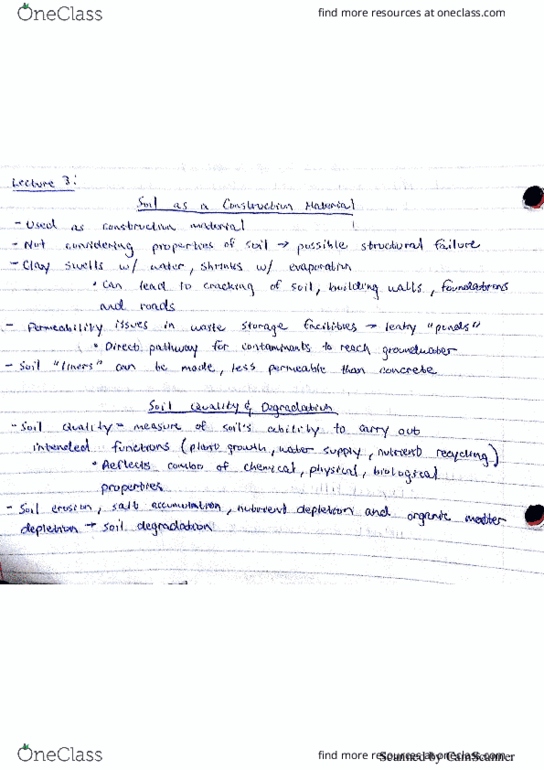 OneClass
find more resources at oneclass.com
Lecture 3:
Soil as a Construction Material
- Used as construction material
- Not considering properties of soil → possible structural failure
- Clay swells w/ water, shrinks w/ evaporation
• Can lead to cracking of soil, building walls, foundations
and roads
- Permeability issues in waste storage facilities → leaky "ponds"
• Direct pathway for contaminants to reach groundwater
- Soil "liners" can be made, less permeable than concrete
Soil Quality & Degradation
- Soil Quality = measure of soil's ability to carry out
intended functions (plant growth, water supply, nutrient recycling)
• Reflects combo of chemical, physical, biological
properties
- Soil erosion, salt accumulation, nutrient depletion and organic matter
depletion → soil degradation
OneClass
find more resources at oneclass.com
Scanned by CamScanner